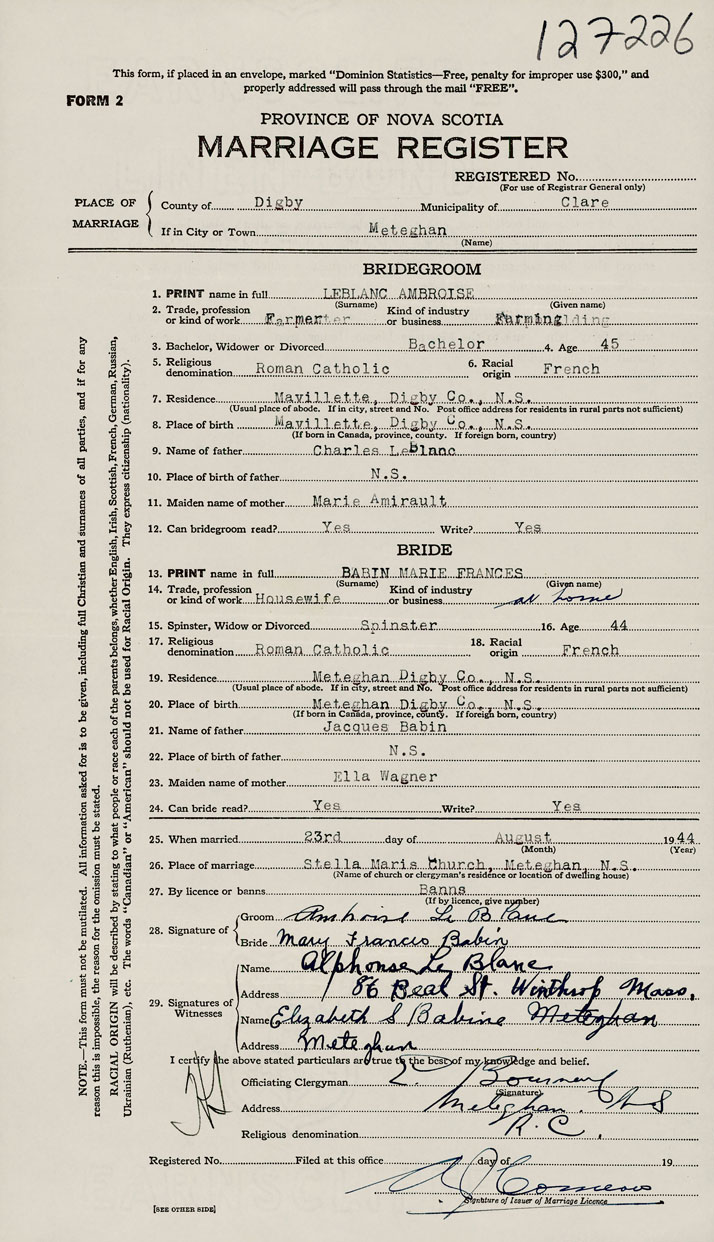 127226
This form, if placed in an envelope, marked "Dominion Statistics—Free, penalty for improper use $300," and
properly addressed will pass through the mail "FREE".
FORM 2
PROVINCE OF NOVA SCOTIA
MARRIAGE REGISTER
REGISTERED No.
(For use of Registrar General only)
PLACE OF MARRIAGE
County of Digby Municipality of Clare
If in City or Town Meteghan
(Name)
BRIDEGROOM
1. PRINT name in full LEBLANC AMBROISE
(Surname) (Given name)
2. Trade, profession or kind of work Farmer Kind of industry or business Farming
3. Bachelor, Widower or Divorced Bachelor 4. Age 45
5. Religious denomination Roman Catholic 6. Racial origin French
7. Residence Mavillette, Digby Co., N.S.
(Usual place of abode. If in city, street and No. Post office address for residents in rural parts not sufficient)
8. Place of birth Mavillette, Digby Co., N.S.
(If born in Canada, province, county. If foreign born, country)
9. Name of father Charles LeBlanc
10. Place of birth of father N.S.
11. Maiden name of mother Marie Amirault
12. Can bridegroom read? Yes Write? Yes
BRIDE
13. PRINT name in full BABIN MARIE FRANCES
(Surname) (Given name)
14. Trade, profession or kind of work Housewife Kind of industry or business at home
15. Spinster, Widow or Divorced Spinster 16. Age 44
17. Religious denomination Roman Catholic 18. Racial origin French
19. Residence Meteghan Digby Co., N.S.
(Usual place of abode. If in city, street and No. Post office address for residents in rural parts not sufficient)
20. Place of birth Meteghan Digby Co., N.S.
(If born in Canada, province, county. If foreign born, country)
21. Name of father Jacques Babin
22. Place of birth of father N.S.
23. Maiden name of mother Ella Wagner
24. Can bride read? Yes Write? Yes
25. When married 23rd day of August 1944
(Month) (Year)
26. Place of marriage Stella Maris Church, Meteghan, N.S.
(Name of church or clergyman's residence or location of dwelling house)
27. By licence or banns Banns
(If by licence, give number)
28. Signature of
Groom Ambroise Le Blanc
Bride Mary Frances Babin
29. Signatures of Witnesses
Name Alphonse Le Blanc
Address 86 Beal St. Winthrop Mass.
Name Elizabeth S Babine Meteghan
Address Meteghan
I certify the above stated particulars are true to the best of my knowledge and belief.
Officiating Clergyman
(Signature)
Address Meteghan N S
Religious denomination R.C.
Registered No. Filed at this office day of 19
Signature of Issuer of Marriage Licence
[SEE OTHER SIDE]
NOTE.—This form must not be mutilated. All information asked for is to be given, including full Christian and surnames of all parties, and if for any
reason this is impossible, the reason for the omission must be stated.
RACIAL ORIGIN will be described by stating to what people or race each of the parents belongs, whether English, Irish, Scottish, French, German, Russian,
Ukrainian (Ruthenian), etc. The words "Canadian" or "American" should not be used for Racial Origin. They express citizenship (nationality).